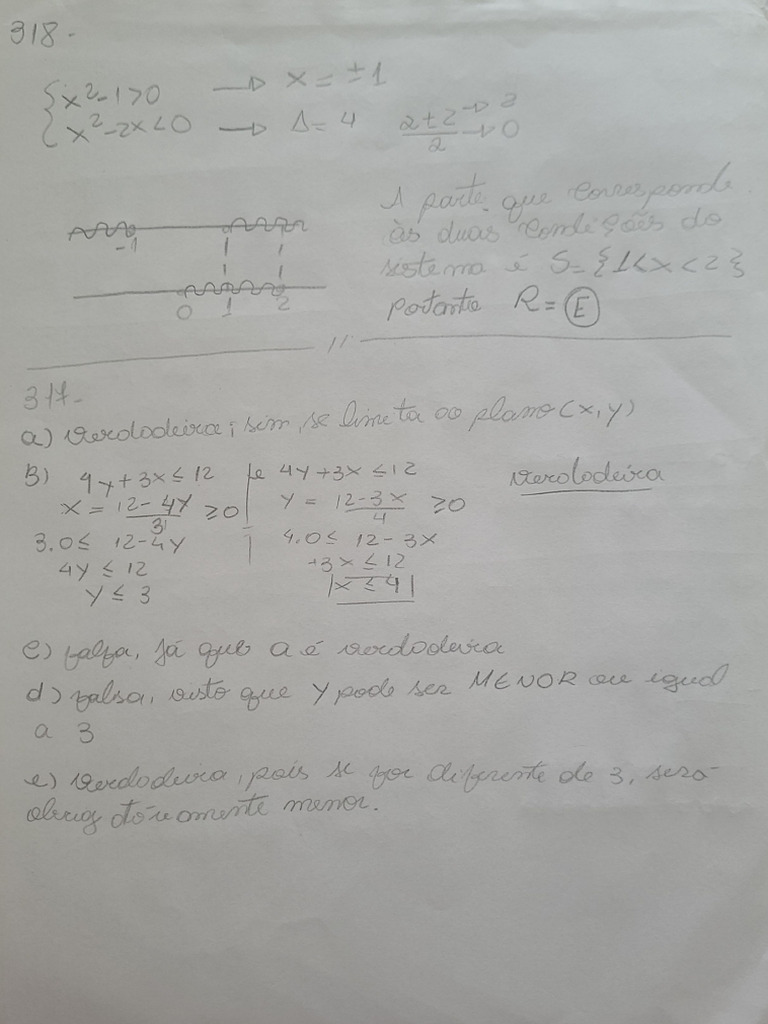 318-
{x²-1>0 → x = ±1
{x²-2x<0 → Δ= 4 2±2/2 → 2 → 0
-1 1
0 1 2
A parte que corresponde
às duas condições do
sistema é S={1<x<2}
portanto R= (E)
//
317-
a) verdadeira; sim, se limita ao plano (x,y)
B) 4y+3x≤12 | e 4y+3x≤12 verdadeira
x = 12-4y/3 ≥0 | y = 12-3x/4 ≥0
3.0≤ 12-4y | 4.0≤ 12-3x
4y ≤ 12 +3x ≤12
y ≤ 3 |x ≤ 4|
c) falsa, já que a é verdadeira
d) falsa, visto que y pode ser MENOR ou igual
a 3
e) verdadeira, pois se for diferente de 3, será
obrigatóriamente menor.